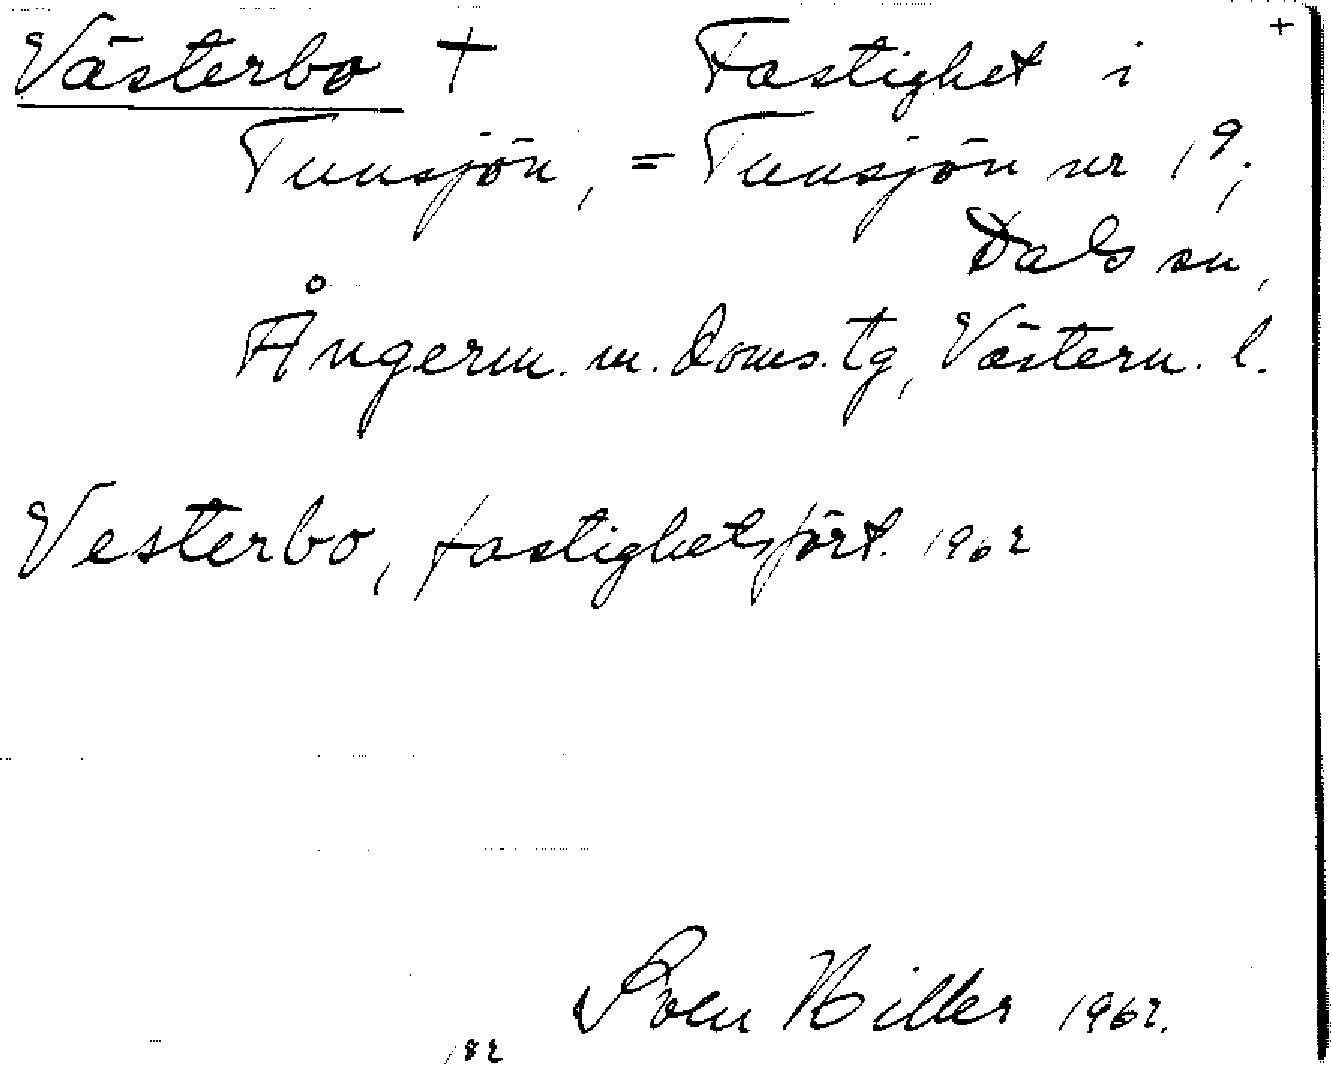 Västerbo + Fastighet i +
Tunsjön, = Tunsjön nr 1⁹;
Dals sn,
Ångerm. m. doms. tg, Västern. l.
Vesterbo, fastighetsfört. 1962
Sven Hiller 1962.
182